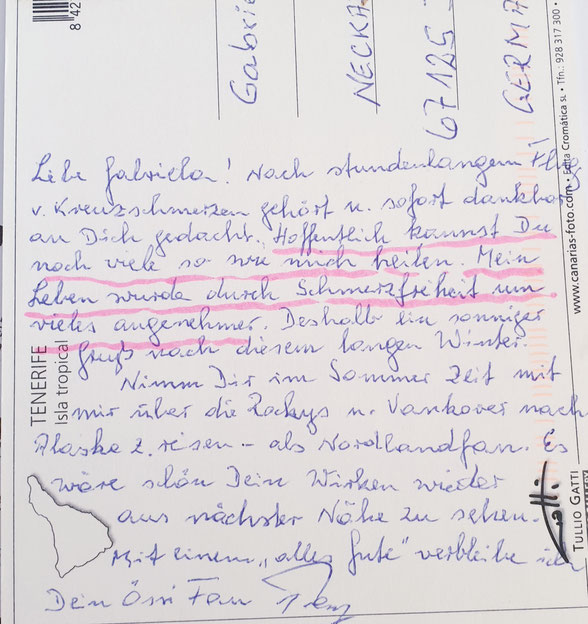 8 42
Gabrie
NECKA
67125
GERMA
Liebe Gabriela! Nach stundenlangem Flug
v. Kreuzschmerzen gehört u. sofort dankbar
an Dich gedacht. Hoffentlich kannst Du
noch viele so wie mich heilen. Mein
Leben wurde durch Schmerzfreiheit um
vieles angenehmer. Deshalb ein sonniger
Gruß nach diesem langen Winter.
Nimm Dir im Sommer Zeit mit
mir über die Rockys u. Vankover nach
Alaska z. reisen - als Nordlandfan. Es
wäre schön Dein Wirken wieder
aus nächster Nähe zu sehen.
Mit einem „alles Gute" verbleibe ich
Dein Össi Fan
TENERIFE
Isla tropical
www.canarias-foto.com • Edita Cromática SL • Tfn.: 928 317 300 •
TULLIO GATTI